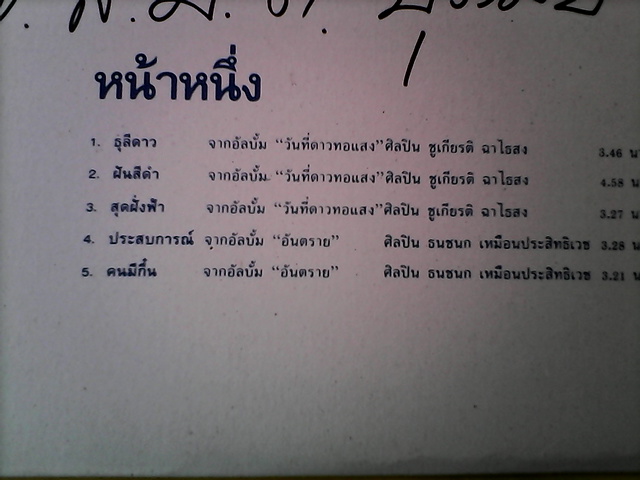 หน้าหนึ่ง
1. ธุลีดาว จากอัลบั้ม “วันที่ดาวทอแสง” ศิลปิน ชูเกียรติ ฉาไธสง 3.46 น
2. ฝันสีดำ จากอัลบั้ม “วันที่ดาวทอแสง” ศิลปิน ชูเกียรติ ฉาไธสง 4.58 น
3. สุดฝั่งฟ้า จากอัลบั้ม “วันที่ดาวทอแสง” ศิลปิน ชูเกียรติ ฉาไธสง 3.27 น
4. ประสบการณ์ จากอัลบั้ม “อันตราย” ศิลปิน ธนชนก เหมือนประสิทธิเวช 3.28 น
5. คนมีกึ๋น จากอัลบั้ม “อันตราย” ศิลปิน ธนชนก เหมือนประสิทธิเวช 3.21 น